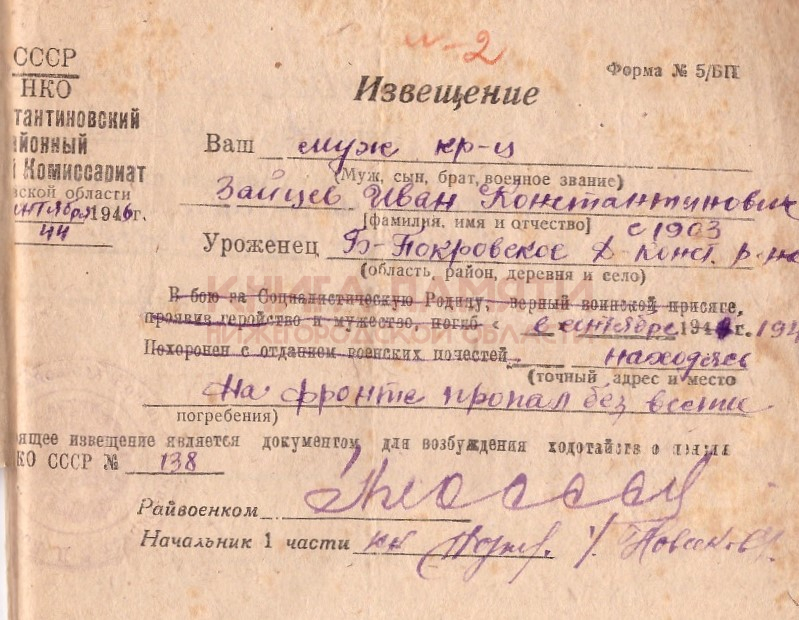 м-2
СССР
Форма № 5/БП
НКО
Извещение
тантиновский
йонный
й Комиссариат
вской области
сентября 1946г.
44
Ваш муж кр-ц
(Муж, сын, брат, военное звание)
Зайцев Иван Константинович
[фамилия, имя и отчество] с 1903
Уроженец Б-Покровское Д-Конст. р-на
(область, район, деревня и село)
КНИГА ПАМЯТИ
НИЖЕГОРОДСКОЙ ОБЛАСТИ
В бою за Социалистическую Родину, верный воинской присяге,
проявив геройство и мужество, погиб « в сентябре 194 г. 194
Похоронен с отданием воинских почестей находясь
(точный адрес и место
На фронте пропал без вести
погребения)
оящее извещение является документом для возбуждения ходотайств о
КО СССР № 138
Райвоенком
Начальник 1 части